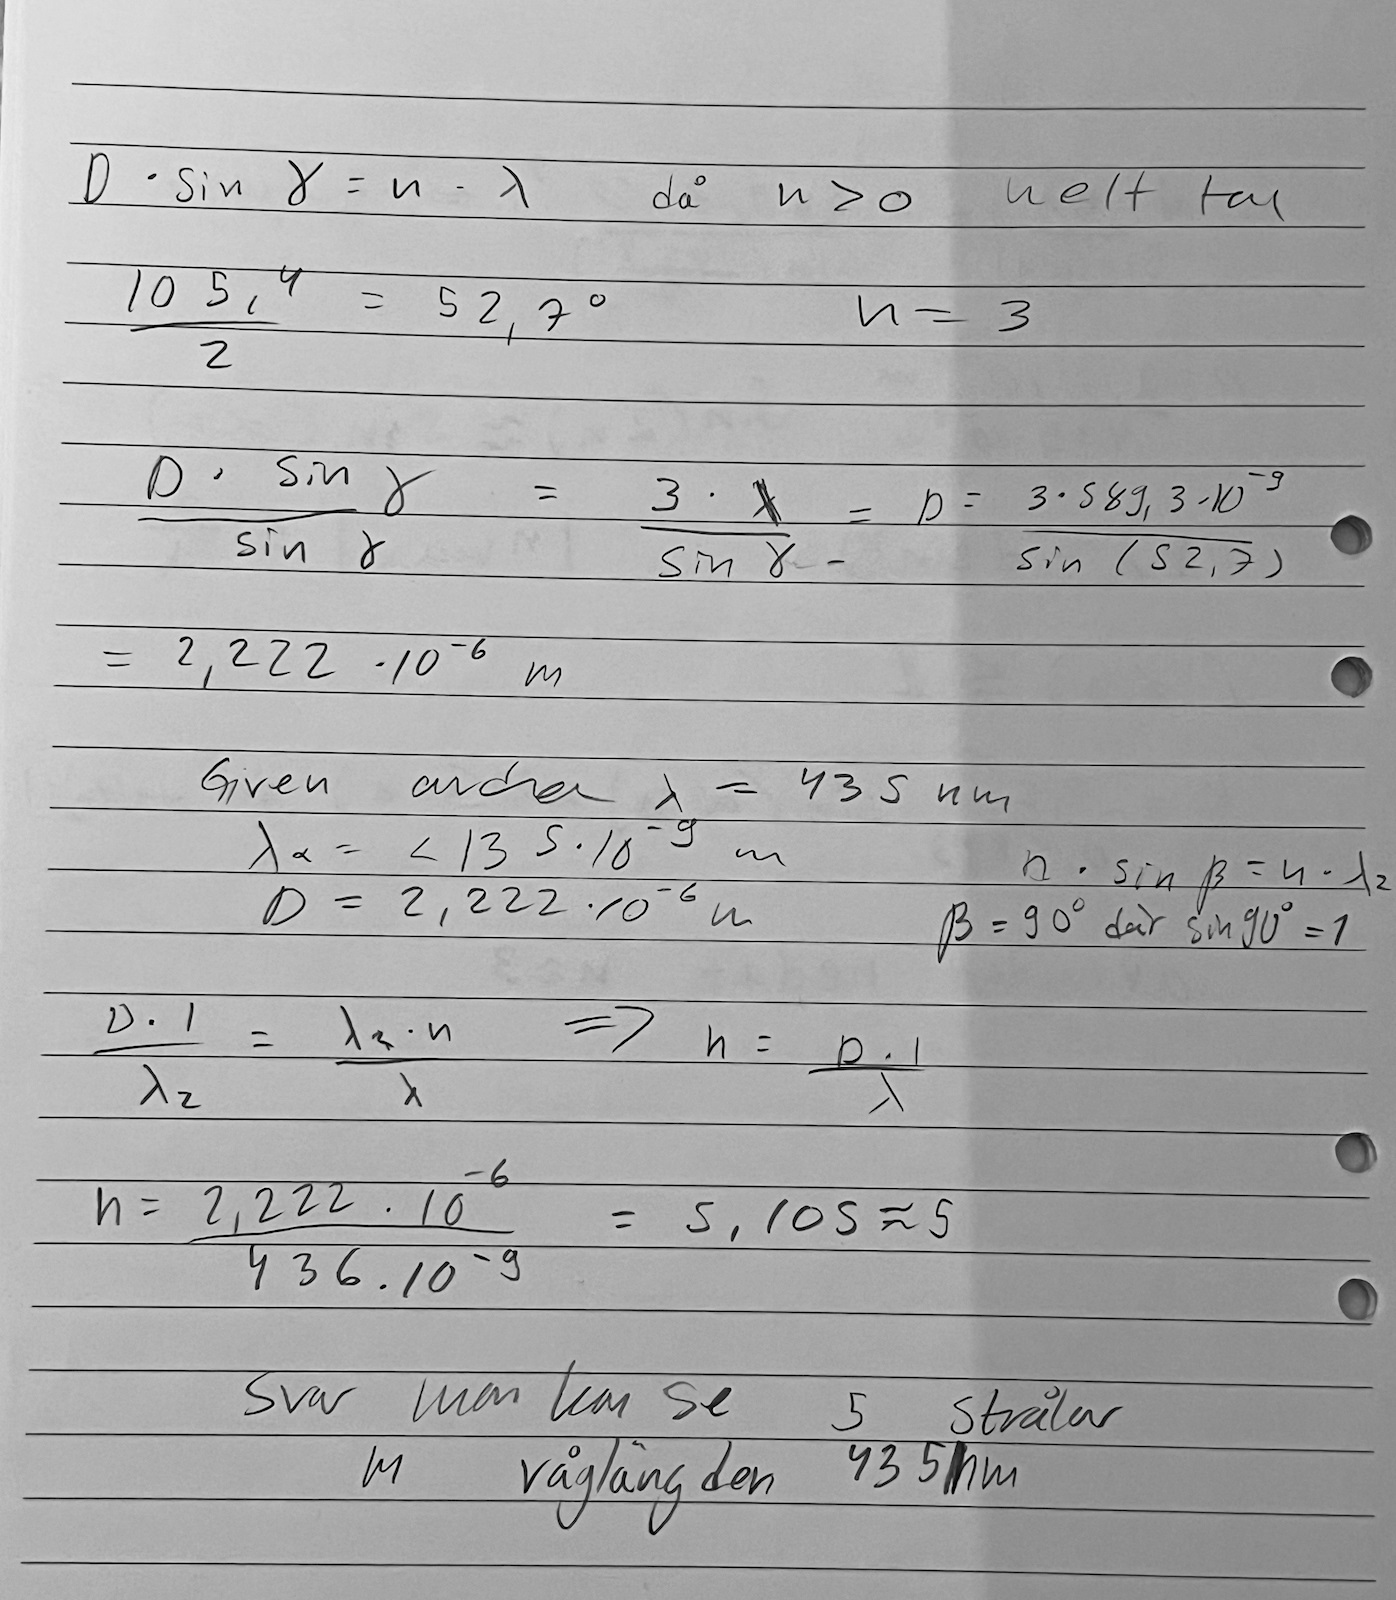 D · sin γ = n · λ då n > 0 helt tal
105,4 / 2 = 52,7° n = 3
D · sin γ / sin γ = 3 · λ / sin γ = D = 3 · 589,3 · 10⁻⁹ / sin (52,7)
= 2,222 · 10⁻⁶ m
Given andra λ = 435 nm
λ₂ = 435 · 10⁻⁹ m
D = 2,222 · 10⁻⁶ m
D · sin β = n · λ₂
β = 90° där sin 90° = 1
D · 1 / λ₂ = λ₂ · n / λ => n = D · 1 / λ
n = 2,222 · 10⁻⁶ / 436 · 10⁻⁹ = 5,105 ≈ 5
Svar man kan se 5 strålar
M våglängden 435 nm